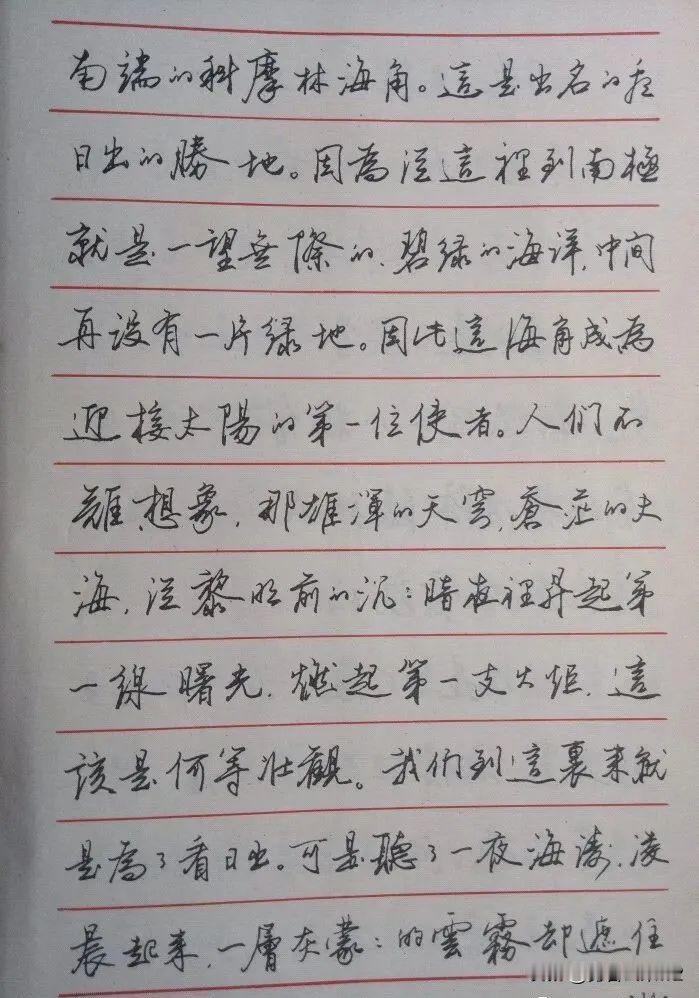 南端的科摩林海角。這是出名的看
日出的勝地。因為從這裡到南極
就是一望無際的,碧綠的海洋,中間
再沒有一片綠地。因此這海角成為
迎接太陽的第一位使者。人們不
難想象,那雄渾的天穹,蒼茫的大
海,從黎明前的沉:暗夜裡昇起第
一線曙光,燃起第一支火炬,這
該是何等壯觀。我们到這裏来就
是為了看日出。可是聽了一夜海濤,凌
晨起来,一層灰蒙:的雲霧却遮住